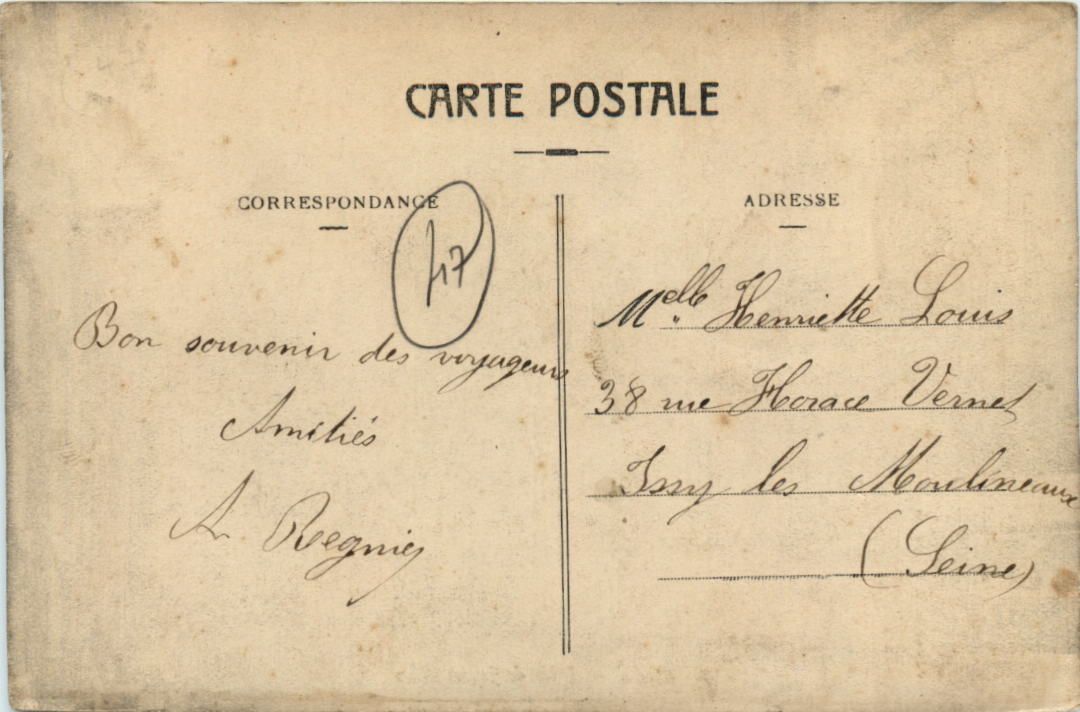 CARTE POSTALE
CORRESPONDANCE
47
Bon souvenir des voyageurs
Amitiés
A. Regnier
ADRESSE
Melle Henriette Louis
38 rue Horace Vernet
Issy les Moulineaux
(Seine)